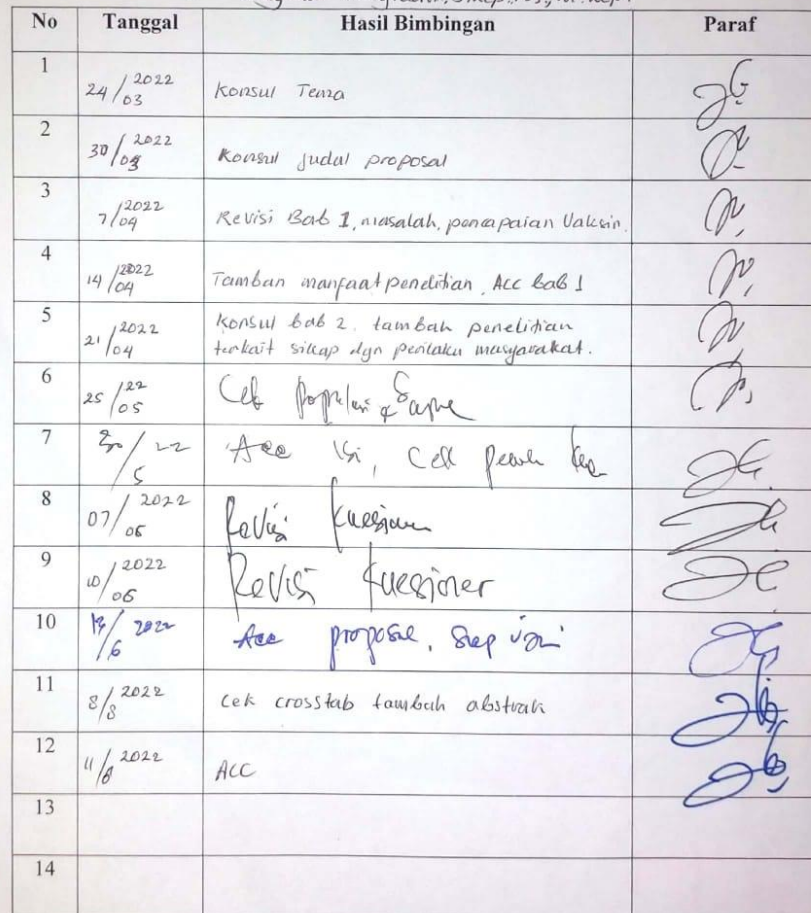 No Tanggal Hasil Bimbingan Paraf
1 24/03 2022 Konsul Tema
2 30/03 2022 Konsul judul proposal
3 7/04 2022 Revisi Bab 1, masalah, pencapaian Vaksin.
4 14/04 2022 Tambah manfaat penelitian, Acc bab 1
5 21/04 2022 Konsul bab 2. tambah penelitian
terkait sikap dgn perilaku masyarakat.
6 25/05 22 Cek Populasi &
7 /5 22 Acc isi, Cek
8 07/06 2022 Revisi Kuesioner
9 10/06 2022 Revisi Kuesioner
10 /6 2022 Acc proposal,
11 8/8 2022 Cek crosstab tambah abstrak
12 11/8 2022 ACC
13
14